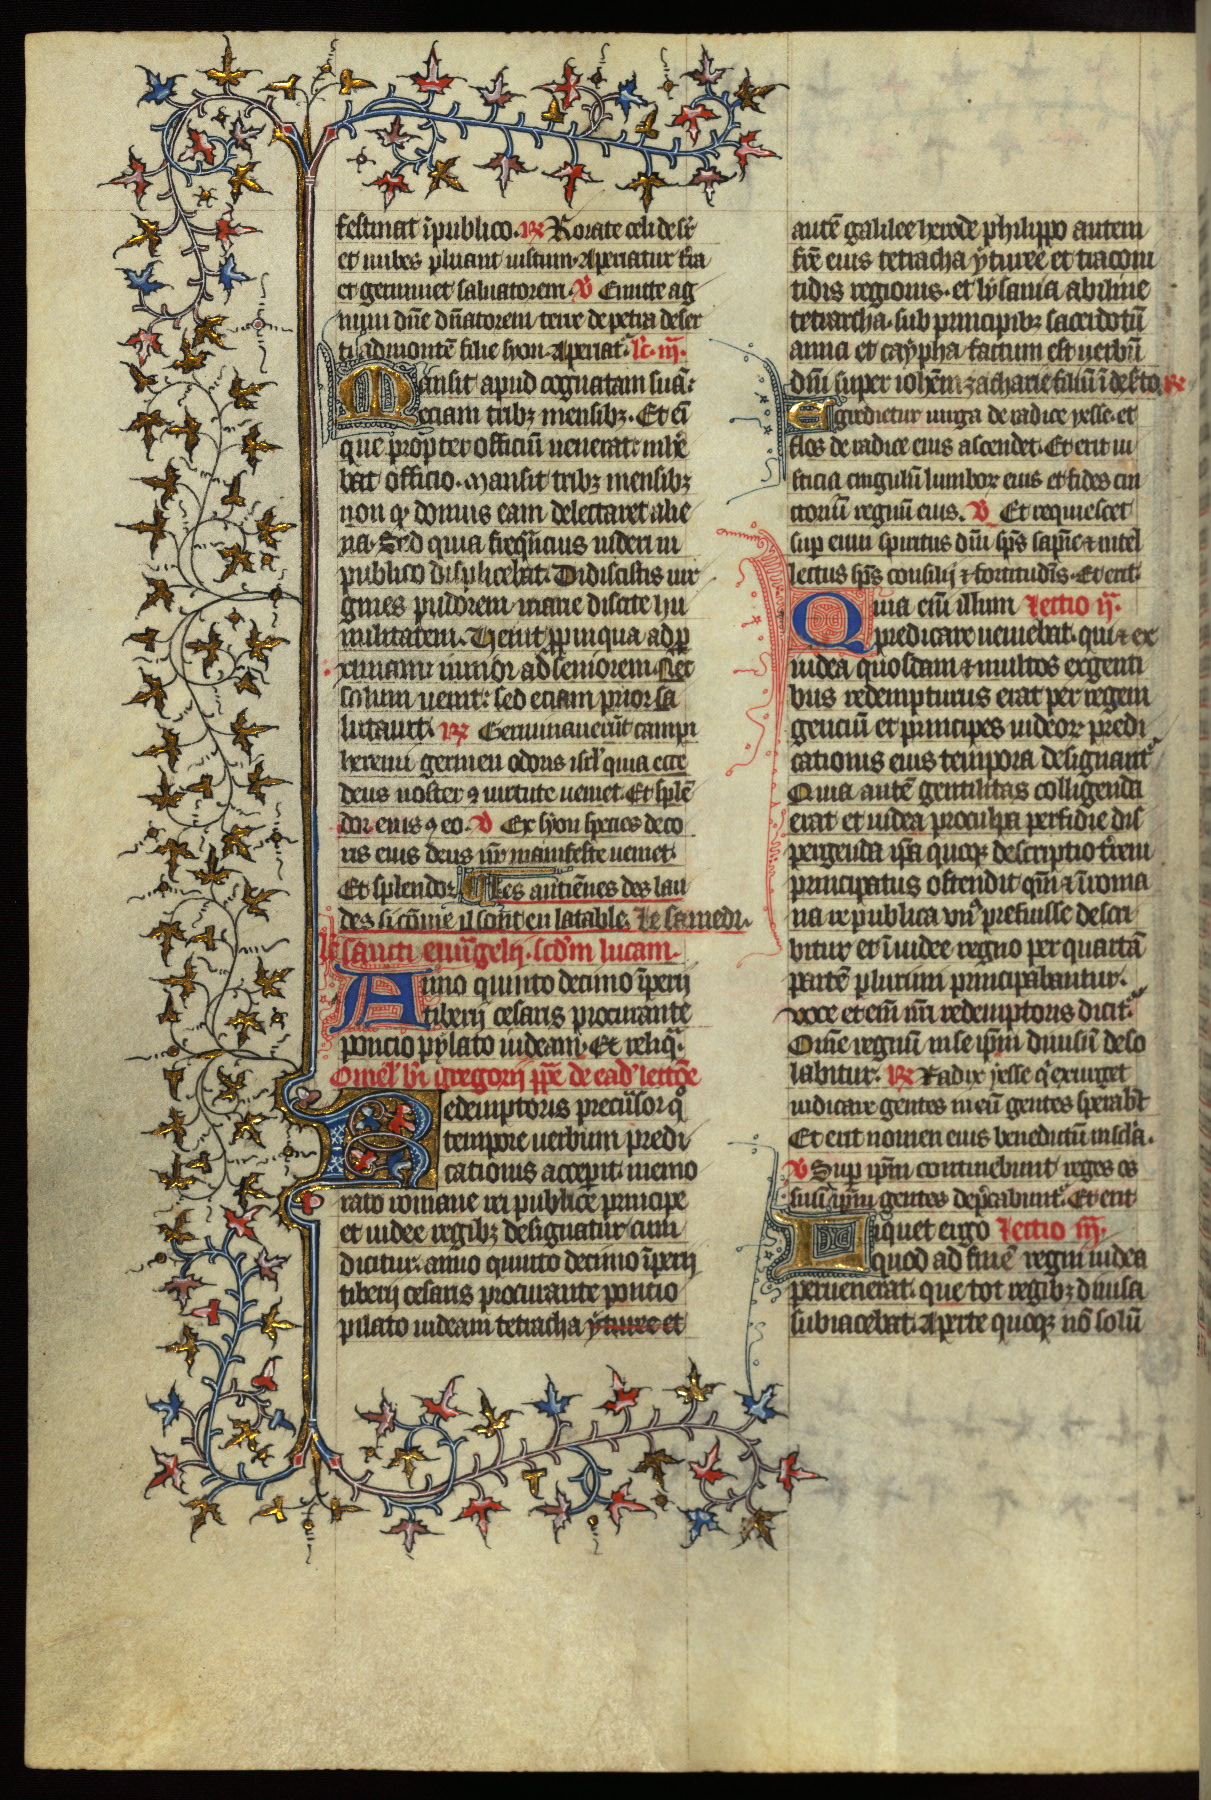 festinat ĩ publico. R̃ Rorate celi desr̃
et nubes pluant iustum. Aperiatur t̃ra
et germinet saluatorem. V̉ Emitte ag
num dñe dñatorem terre de petra deser
ti ad montẽ filie syon. Aperiat᷑. lc̃. iij̃.
Mansit apud cognatam suã:
eciam tribꝫ mensibꝫ. Et eũ
que propter officiũ uenerat: inhe
bat officio. Mansit tribꝫ mensibꝫ
non qͥ domus eam delectaret alie
na. Sed quia freq̃ncius uideri in
publico displicebat. Didicistis uir
gines pudorem marie discite hu
militatem. Uenit ꝓpinqua ad ꝓ
ximam: iunior ad seniorem. Nec
solum uenit: sed eciam prior sa
lutauit. R̃ Germinauerũt campi
heremi germen odoris isrl̃ quia ecce
deus noster ꝯ uirtute ueniet. Et splẽ
dor eius ꝯ eo. V̉ Ex syon species deco
ris eius deus nr̃ manifeste ueniet.
Et splendor. Les antiẽnes des lau
des si cõme il sont en la table. Le samedi.
lc̃ sancti euũgelij. scdm̃ lucam.
Anno quinto decimo ĩperij
tiberij cesaris procurante
poncio pylato iudeam. Et reliqͣ.
Omel̃ bt̃i gregorij p̃pe de ead̃ lectiõe
Redemptoris precũsor qͦ
tempore uerbum predi
cationis accepit: memo
rato romane rei publice principe
et iudee regibꝫ designatur: cum
dicitur: anno quinto decimo ĩperij
tiberij cesaris procurante poncio
pilato iudeam tetracha yturee et
autẽ galilee herode philippo autem
fr̃e eius tetracha yturee et tracom
tidis regionis. et lysania abiline
tetrarcha. sub principibꝫ sacerdotũ
anna et caypha factum est uerbũ
dñi super ioh̃em zacharie filiũ ĩ des̃to. R̃
Egredietur uirga de radice yesse. et
flos de radice eius ascendet. Et erit iu
sticia cingulũ lumboꝝ eius et fides cin
ctoriũ renũ eius. V̉ Et requiescet
sup eum spiritus dñi sp̃s sapiẽ ⁊ intel
lectus sp̃s consilij ⁊ fortitudĩs. Et erit.
Quia eũ illum Lectio ij̃.
predicare ueniebat. qui ⁊ ex
iudea quosdam ⁊ multos ex genti
bus redempturus erat per regem
genciũ et principes iudeoꝝ predi
cationis eius tempora designant᷑.
Quia autẽ gentilitas colligenda
erat et iudea pro culpa perfidie dis
pergenda ip̃a quoqꝫ descriptio t̃reni
principatus ostendit qm̃ ⁊ ĩ roma
na re publica vnꝰ prefuisse descri
bitur et ĩ iudee regno per quartã
partẽ plurimi principabantur.
voce etem̃ nr̃i redemptoris dicit᷑.
Om̃e regnũ in se ip̃m diuisũ deso
labitur. R̃ Radix yesse qͥ exurget
iudicare gentes in eũ gentes sperabt̃
Et erit nomen eius benedictũ in sc̃la.
V̉ Sup ip̃m continebunt reges os
suũ ip̃m gentes dep̃cabunt᷑. Et erit
Liquet ergo Lectio iij̃.
quod ad finẽ regni iudea
peruenerat. que tot regibꝫ diuisa
subiacebat. Aperte quoqꝫ nõ solũ